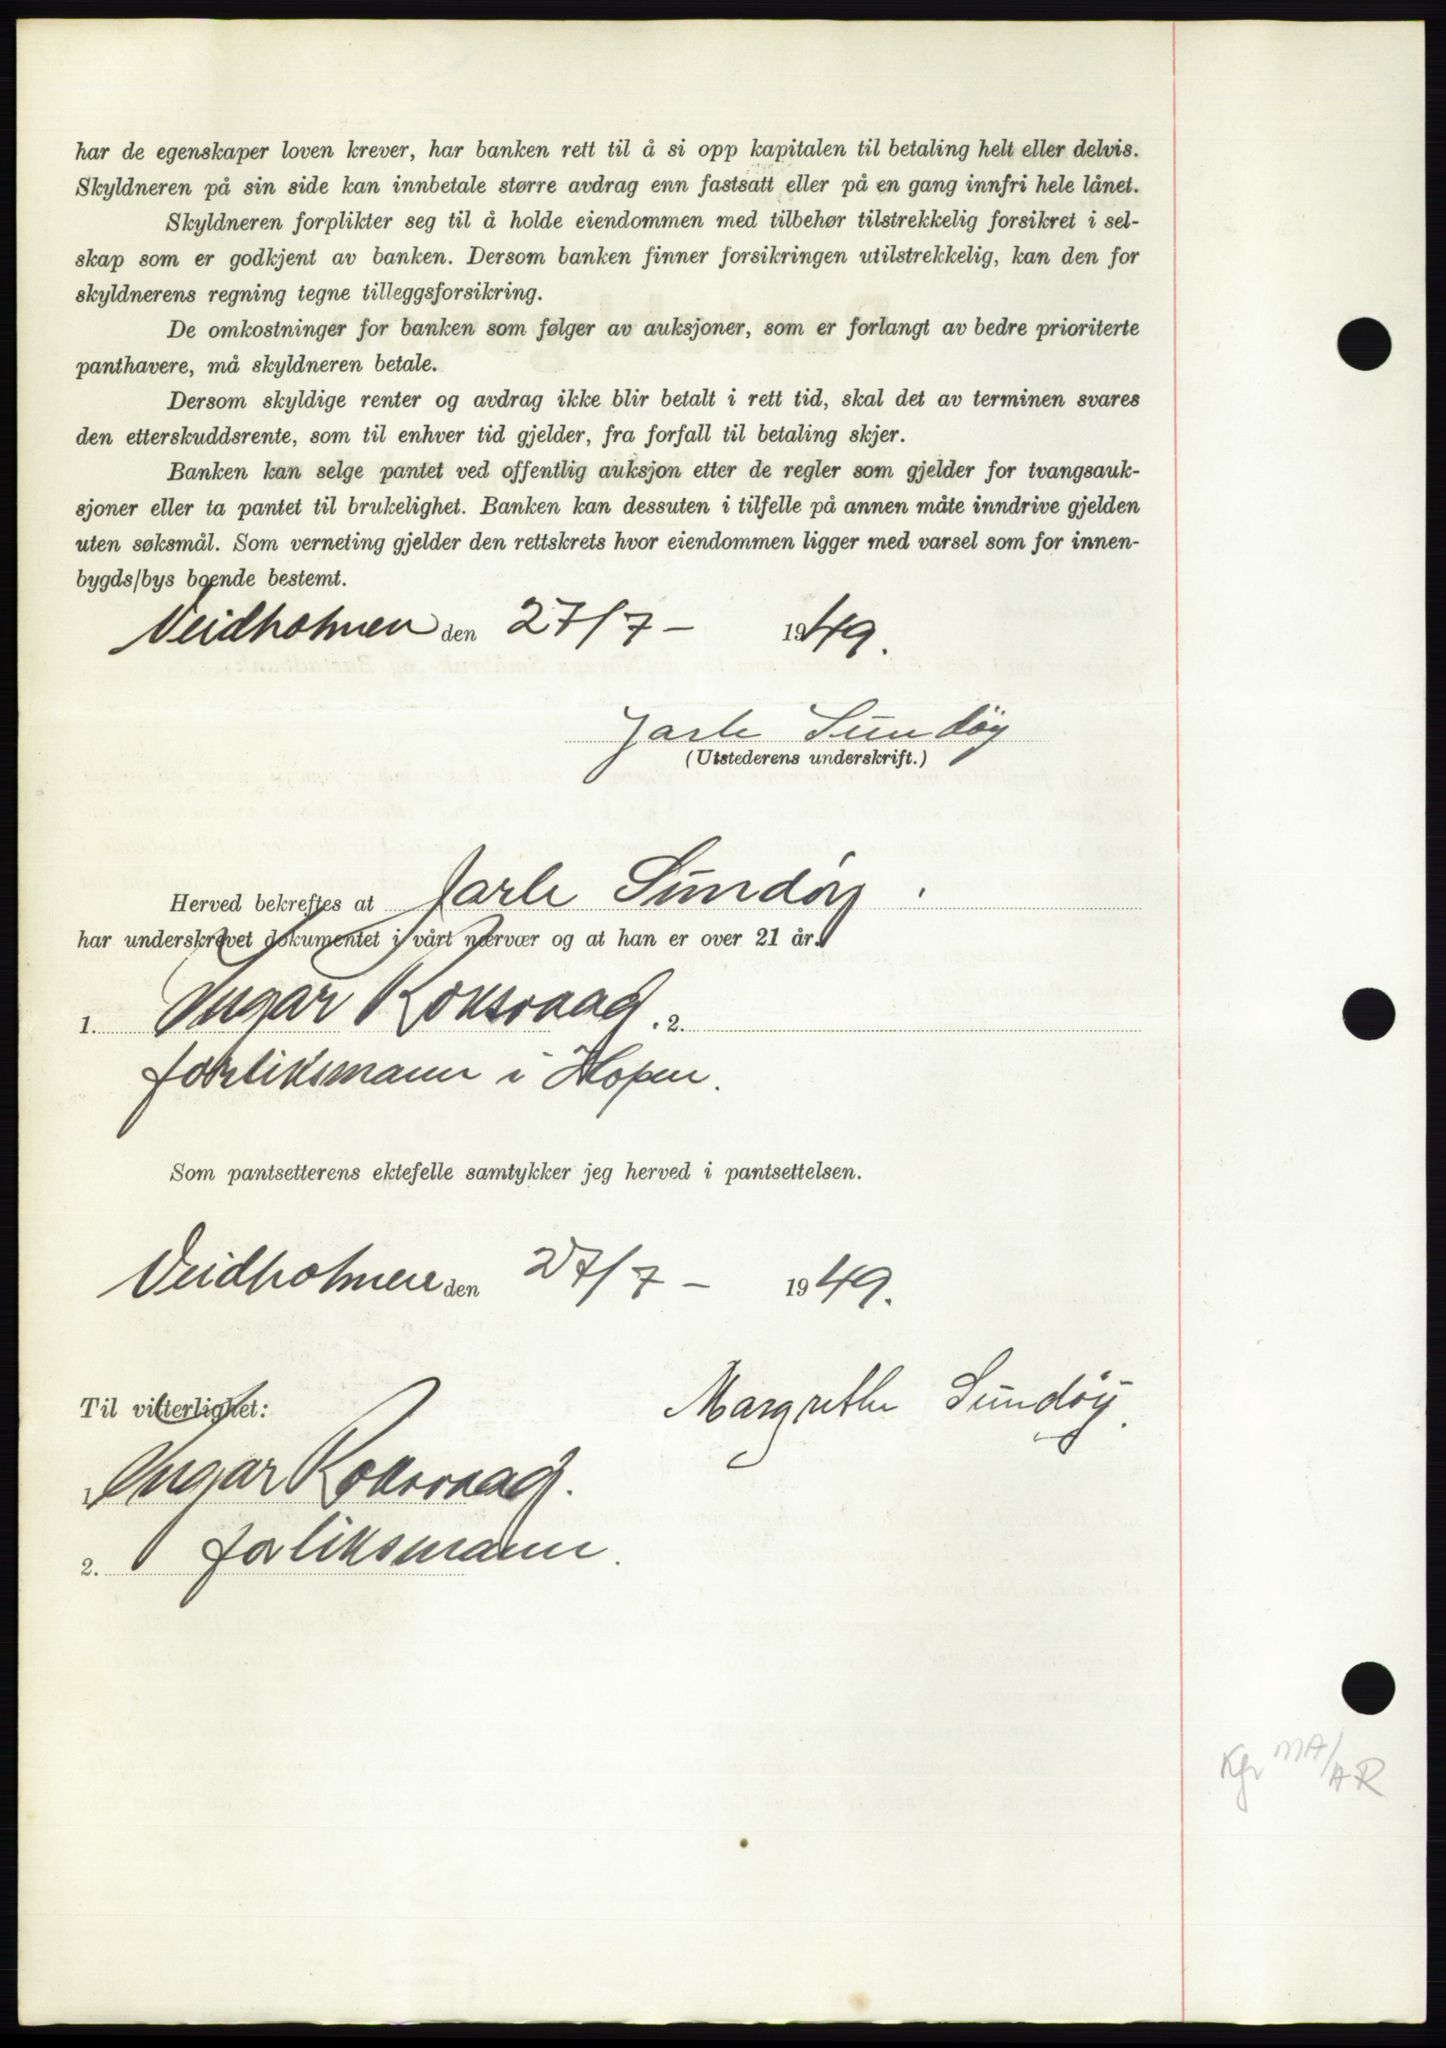 har de egenskaper loven krever, har banken rett til å si opp kapitalen til betaling helt eller delvis.
Skyldneren på sin side kan innbetale større avdrag enn fastsatt eller på en gang innfri hele lånet.
Skyldneren forplikter seg til å holde eiendommen med tilbehør tilstrekkelig forsikret i sel-
skap som er godkjent av banken. Dersom banken finner forsikringen utilstrekkelig, kan den for
skyldnerens regning tegne tilleggsforsikring.
De omkostninger for banken som følger av auksjoner, som er forlangt av bedre prioriterte
panthavere, må skyldneren betale.
Dersom skyldige renter og avdrag ikke blir betalt i rett tid, skal det av terminen svares
den etterskuddsrente, som til enhver tid gjelder, fra forfall til betaling skjer.
Banken kan selge pantet ved offentlig auksjon etter de regler som gjelder for tvangsauk-
sjoner eller ta pantet til brukelighet. Banken kan dessuten i tilfelle på annen måte inndrive gjelden
uten søksmål. Som verneting gjelder den rettskrets hvor eiendommen ligger med varsel som for innen-
bygds/bys boende bestemt.
Veidholmen den 27/7 - 1949.
Jarle Sundøy
(Utstederens underskrift.)
Herved bekreftes at Jarle Sundøy
har underskrevet dokumentet i vårt nærvær og at han er over 21 år.
1. Ingar Roksvaag. 2.
forliksmann i Hopen.
Som pantsetterens ektefelle samtykker jeg herved i pantsettelsen.
Veidholmen den 27/7 - 1949.
Margrethe Sundøy.
Til vitterlighet:
1. Ingar Roksvaag.
2. forliksmann.
Kfr MA/AR